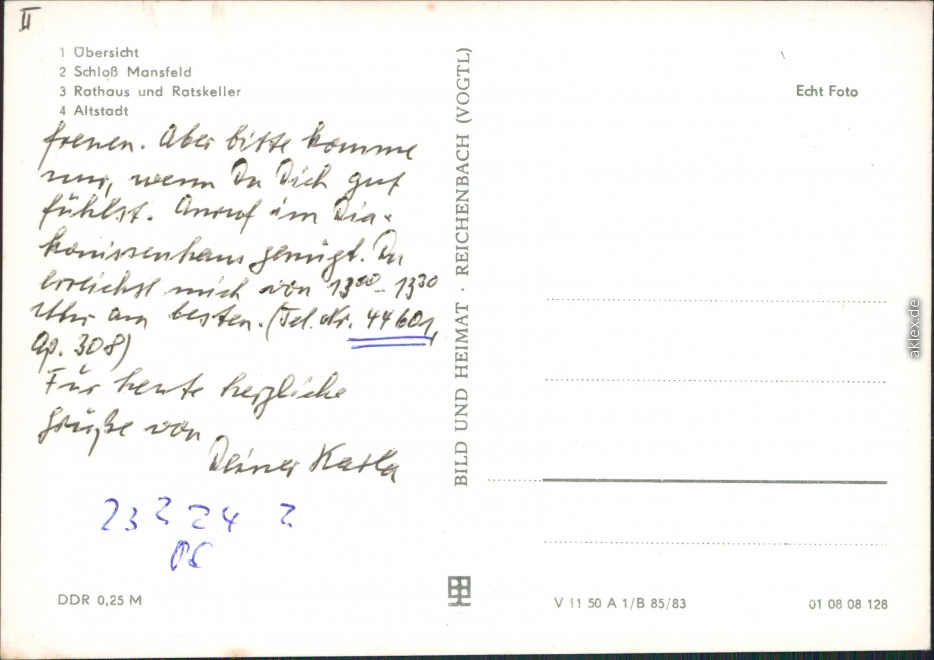 II
1 Übersicht
2 Schloß Mansfeld
3 Rathaus und Ratskeller
4 Altstadt
freuen. Aber bitte komme
nur, wenn Du Dich gut
fühlst. Anruf im Dia-
konissenhaus genügt. Du
erreichst mich von 13⁰⁰ - 13³⁰
Uhr am besten. (Tel. Nr. 44601,
Ap. 308)
Für heute herzliche
Grüße von
Deiner Karla
23 2 24 2
DDR 0,25 M
BILD UND HEIMAT · REICHENBACH (VOGTL)
Echt Foto
V 11 50 A 1/B 85/83
01 08 08 128
aklex.de